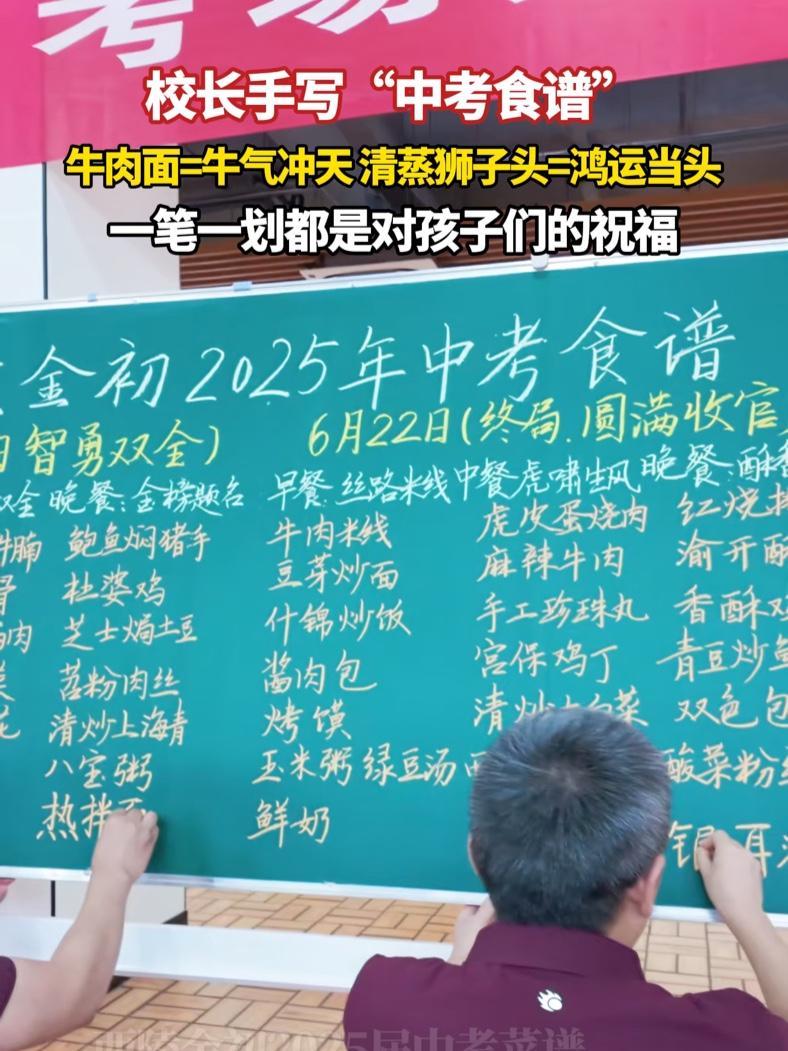 考场
校长手写“中考食谱”
牛肉面=牛气冲天 清蒸狮子头=鸿运当头
一笔一划都是对孩子们的祝福
金初2025年中考食谱
智勇双全) 6月22日(终局.圆满收官
双全 晚餐:金榜题名 早餐:丝路米线 中餐虎啸生风 晚餐:酥香
牛腩 鲍鱼焖猪手 牛肉米线 虎皮蛋烧肉 红烧
杜婆鸡 豆芽炒面 麻辣牛肉 渝开酥
肉 芝士焗土豆 什锦炒饭 手工珍珠丸 香酥鸡
菜 苕粉肉丝 酱肉包 宫保鸡丁 青豆炒
花 清炒上海青 烤馍 清炒 白菜 双色包
八宝粥 玉米粥 绿豆汤 酸菜粉丝
热拌 鲜奶 银耳
金初2025届中考菜谱